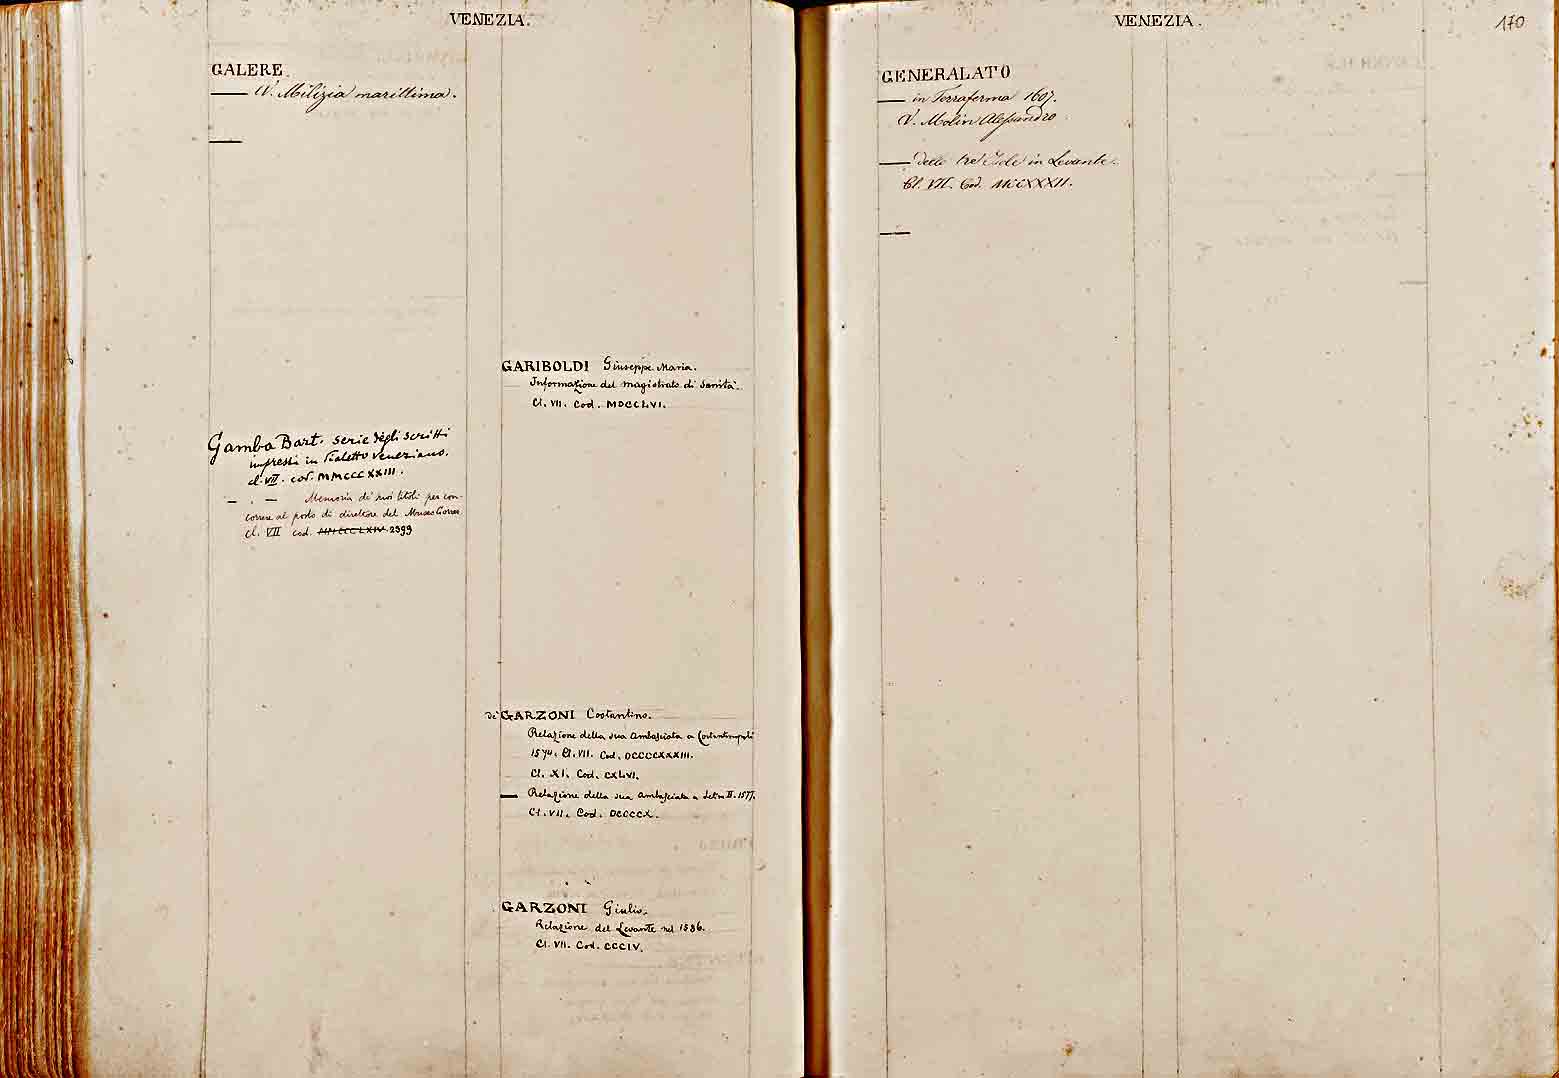 VENEZIA.
GALERE.
— V. Milizia marittima.
—
Gamba Bart. serie degli scritti
impressi in dialetto veneziano.
cl. VII. cod. MMCCCXXIII.
— . — Memoria de' suoi titoli per con-
correre al posto di direttore del Museo Correr
cl. VII cod. 2399
GARIBOLDI Giuseppe Maria.
Informazione del magistrato di Sanità.
Cl. VII. Cod. MDCCLVI.
de' GARZONI Costantino.
Relazione della sua Ambasciata a Costantinopoli
1574. Cl. VII. Cod. DCCCCXXXIII.
Cl. XI. Cod. CXLVI.
— Relazione della sua Ambasciata a II. 1577.
Cl. VII. Cod. DCCCCX.
GARZONI Giulio.
Relazione del Levante nel 1586.
Cl. VII. Cod. CCCIV.
VENEZIA.
170
GENERALATO
— in Terraferma 1607.
V. Molin Alessandro.
— delle tre Isole in Levante.
Cl. VII. Cod. MCCXXXII.
—